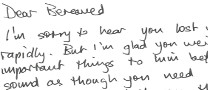 Dear Bereaved
I'm sorry to hear you lost
rapidly. But I'm glad you were
important things to him
sound as though you need